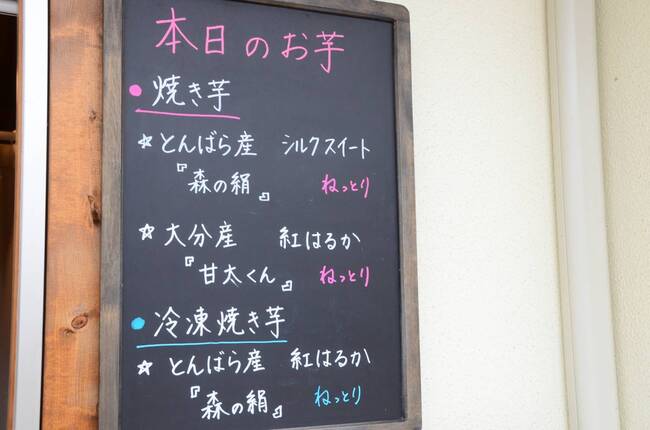 本日のお芋
•焼き芋
☆とんばら産 シルクスイート
『森の絹』 ねっとり
☆大分産 紅はるか
『甘太くん』 ねっとり
•冷凍焼き芋
☆とんばら産 紅はるか
『森の絹』 ねっとり